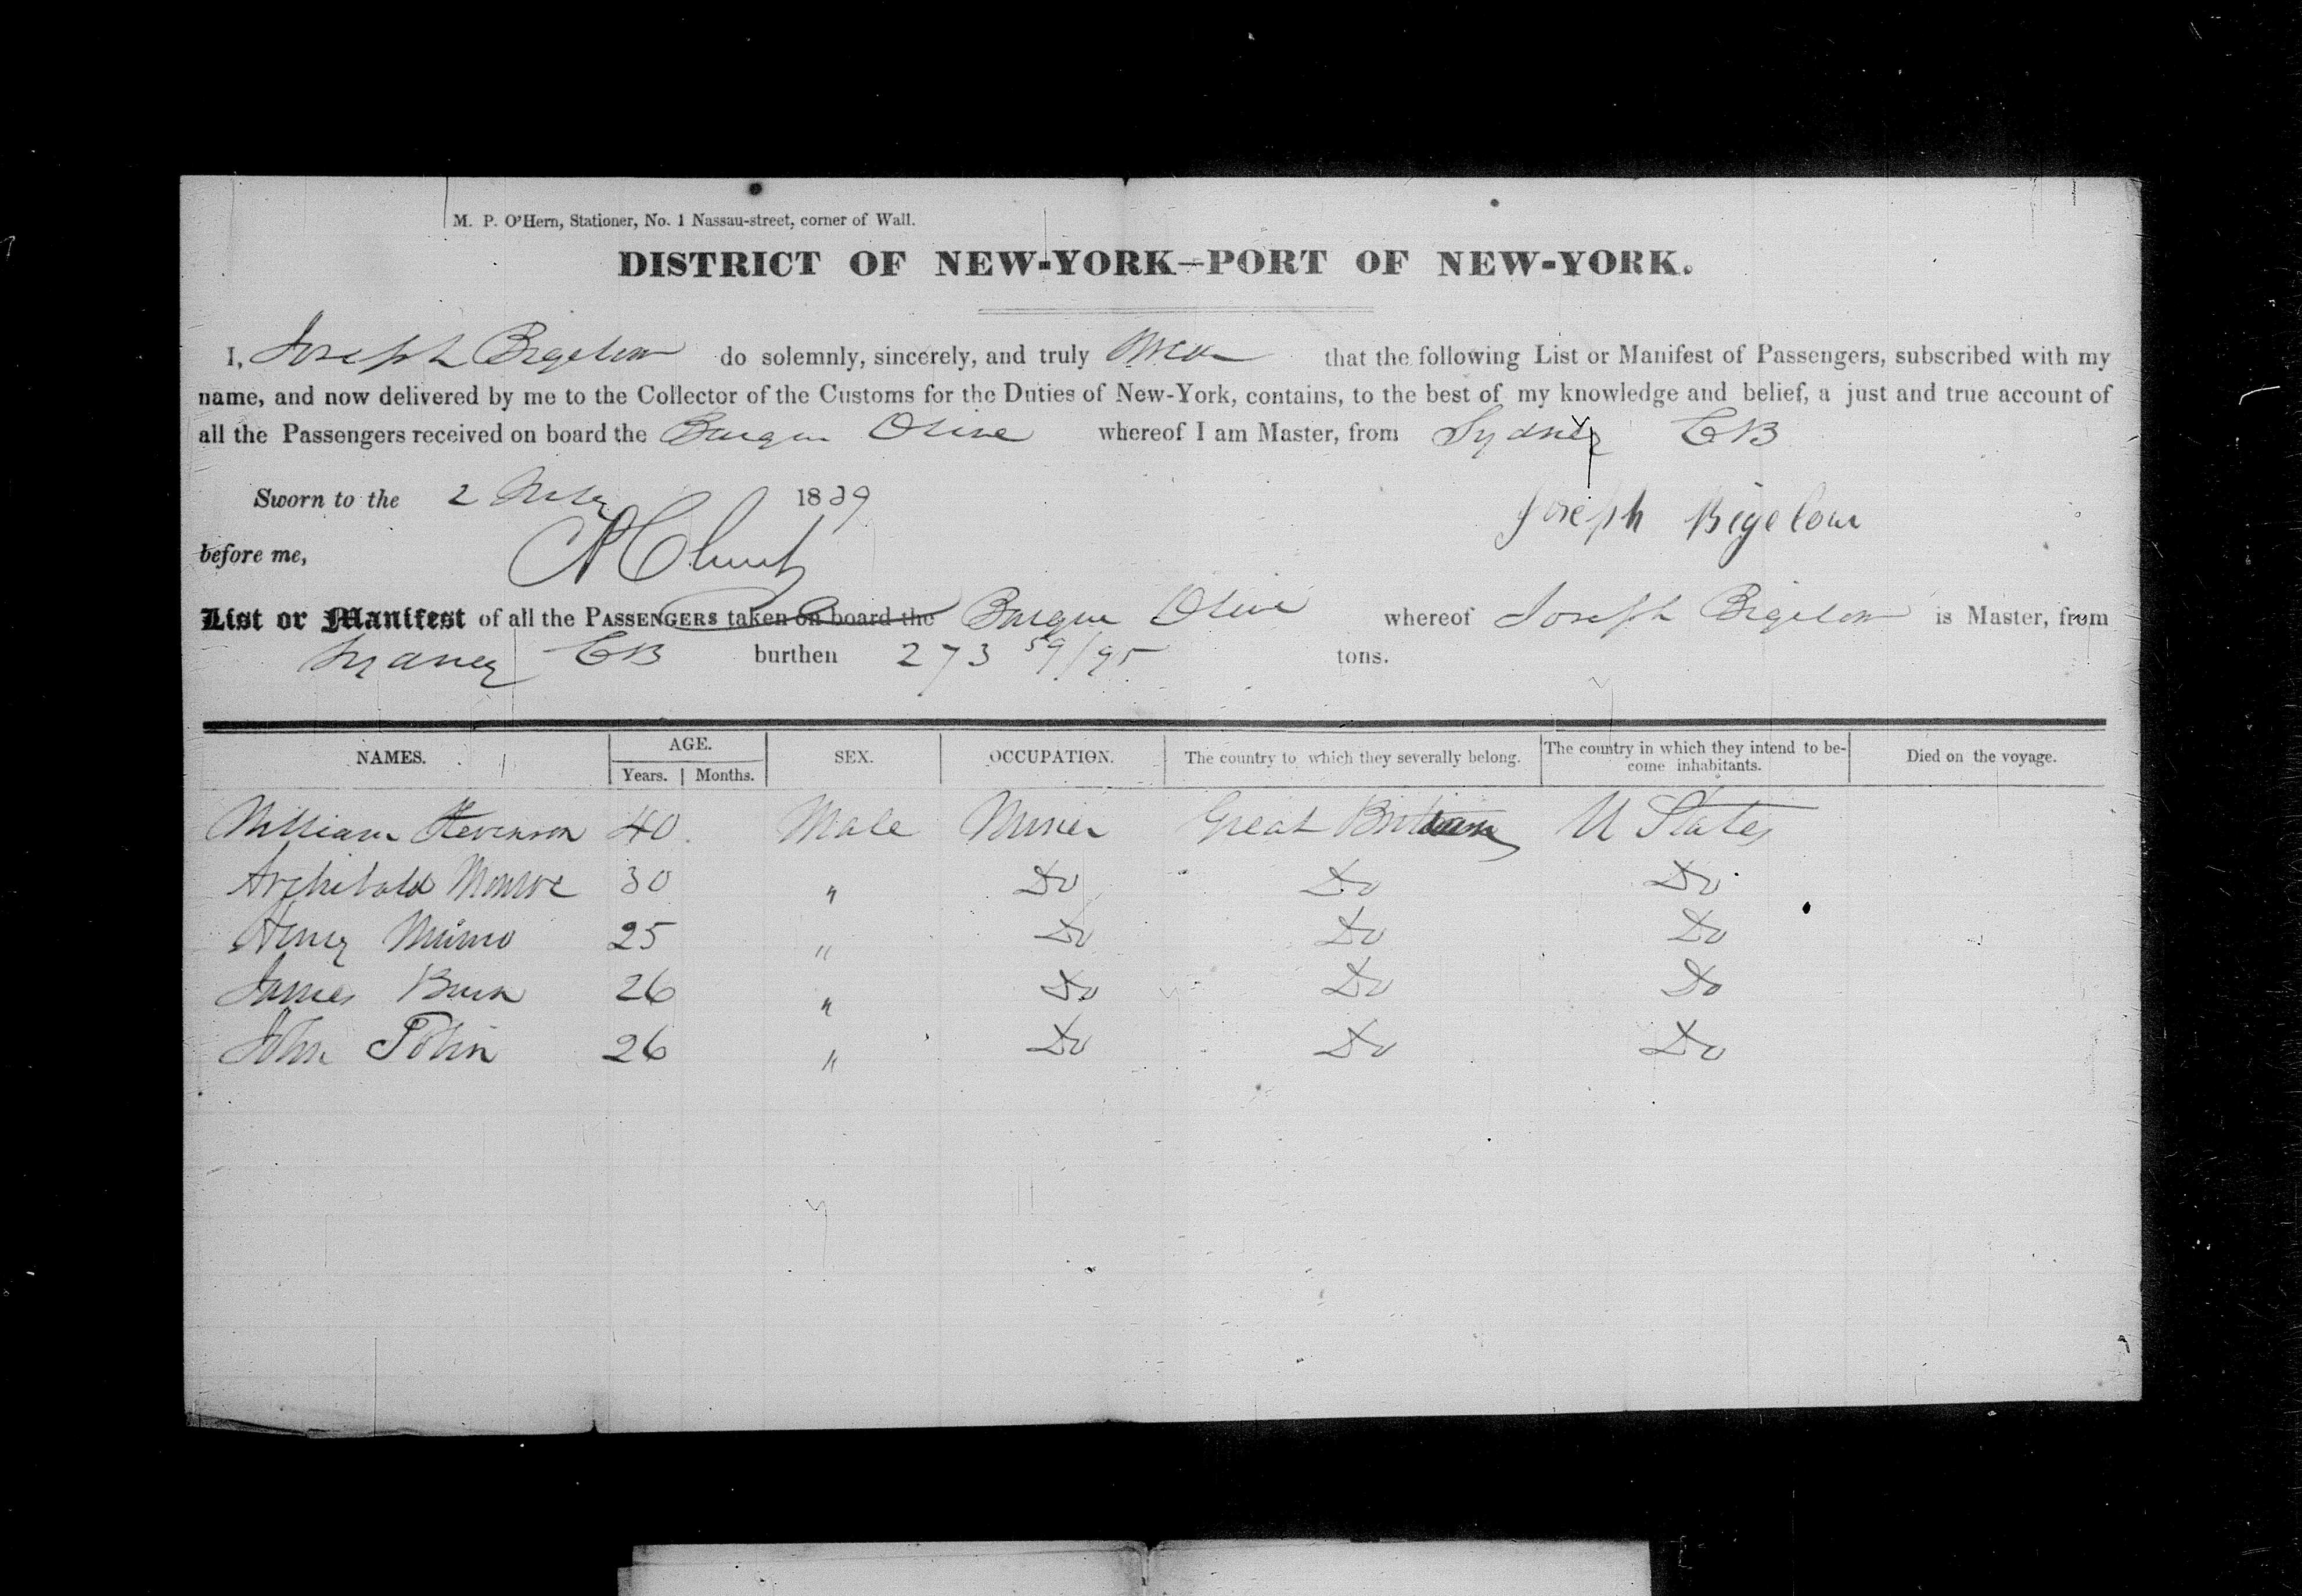 M. P. O'Hern, Stationer, No. 1 Nassau-street, corner of Wall.
DISTRICT OF NEW-YORK—PORT OF NEW-YORK.
I, Joseph Bigelow do solemnly, sincerely, and truly swear that the following List or Manifest of Passengers, subscribed with my
name, and now delivered by me to the Collector of the Customs for the Duties of New-York, contains, to the best of my knowledge and belief, a just and true account of
all the Passengers received on board the Barque Olive whereof I am Master, from Sydney CB
Sworn to the 2 July 1839 Joseph Bigelow
before me,
List or Manifest of all the PASSENGERS taken on board the Barque Olive whereof Joseph Bigelow is Master, from
Sydney CB burthen 273 59/95 tons.
NAMES. AGE. Years. Months. SEX. OCCUPATION. The country to which they severally belong. The country in which they intend to become inhabitants. Died on the voyage.
William Stevenson 40 Male Miner Great Britain U States
Archibald Monroe 30 " Do Do Do
Henry Munro 25 " Do Do Do
James Burn 26 " Do Do Do
John Tobin 26 " Do Do Do